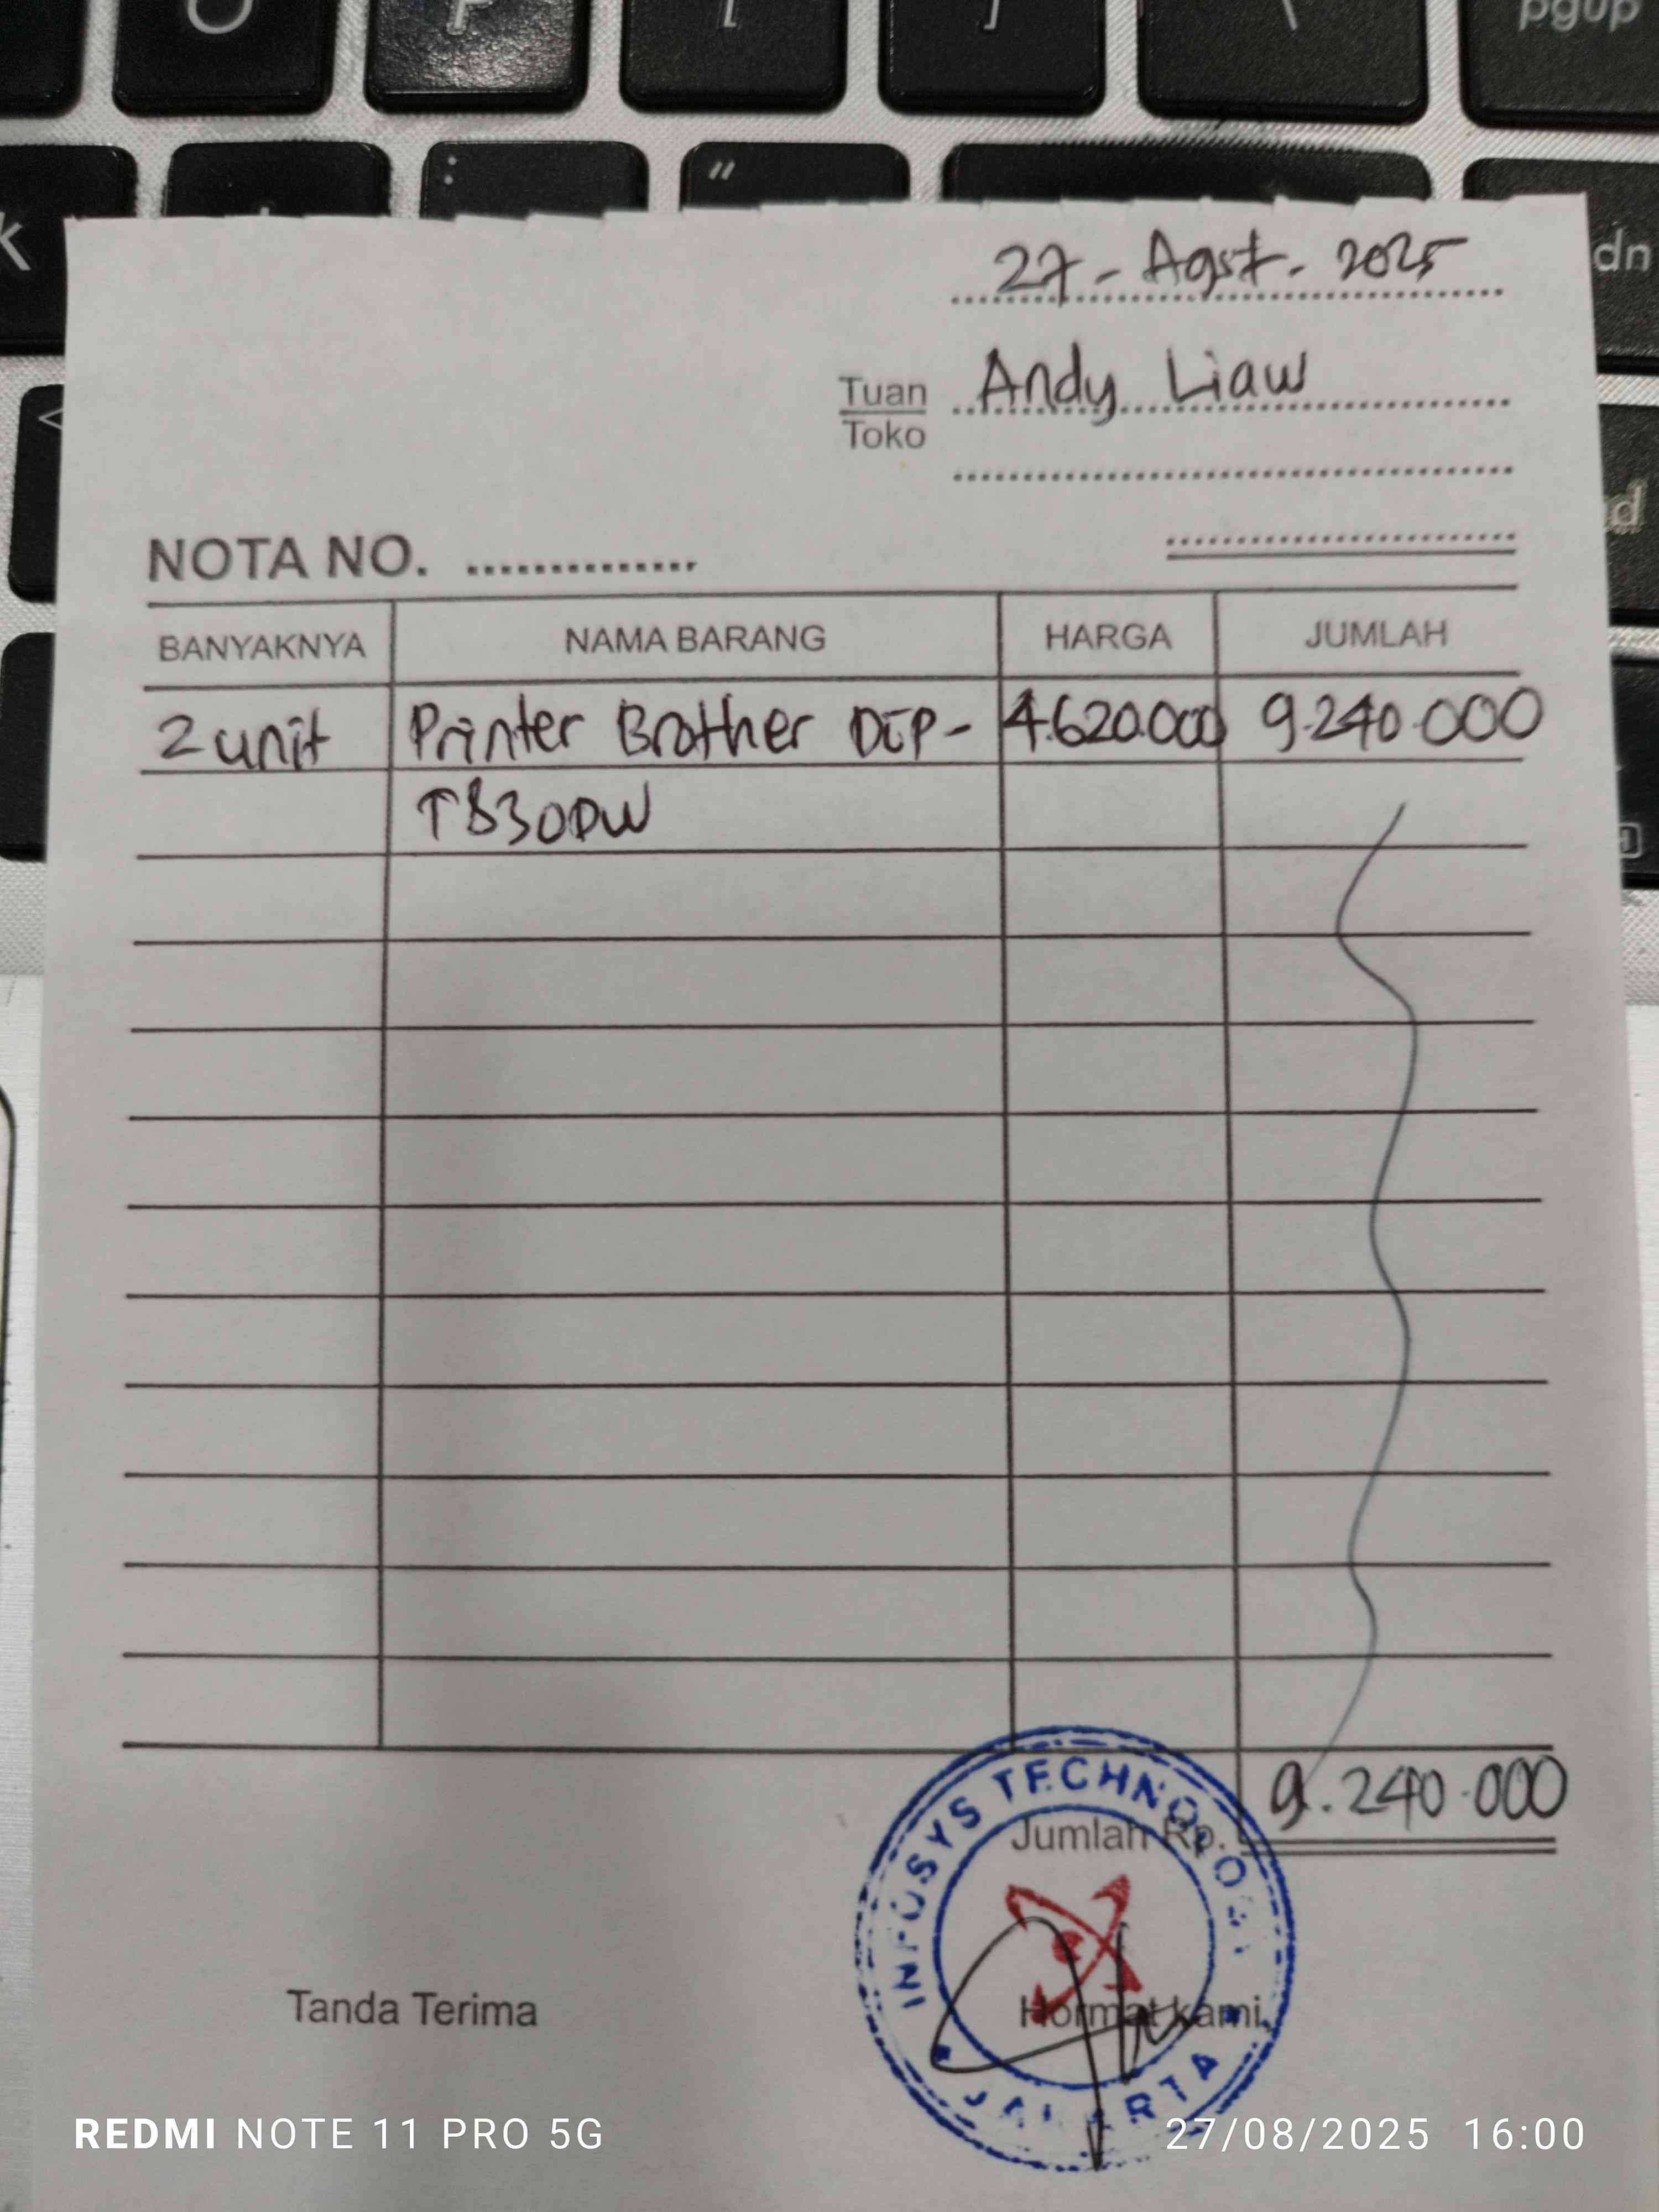 P
[
]
\
pgup
k
:
"
dn
<
27 - Agst - 2025
Tuan Andy Liaw
Toko
NOTA NO. ..............
BANYAKNYA NAMA BARANG HARGA JUMLAH
2 unit Printer Brother DCP- 4.620.000 9.240.000
T830DW
Jumlah Rp. 9.240.000
INFOSYS TECHNOLOGY
Tanda Terima Hormat kami,
JAKARTA
REDMI NOTE 11 PRO 5G 27/08/2025 16:00